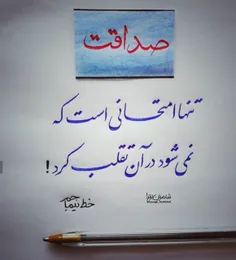 صداقت
تنها امتحانی است که
نمی شود در آن تقلب کرد!
خط نیما